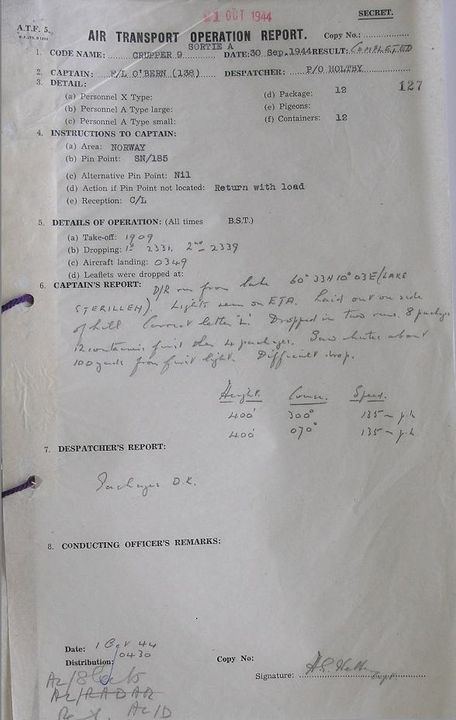 1 OCT 1944
SECRET.
A.T.F. 5.
AIR TRANSPORT OPERATION REPORT. Copy No.:
SORTIE A
1. CODE NAME: CRUPPER 9 DATE: 30 Sep. 1944 RESULT: COMPLETED
2. CAPTAIN: F/L O'BERN (138) DESPATCHER: F/O HOLTBY
3. DETAIL: 127
(a) Personnel X Type: (d) Package: 12
(b) Personnel A Type large: (e) Pigeons:
(c) Personnel A Type small: (f) Containers: 12
4. INSTRUCTIONS TO CAPTAIN:
(a) Area: NORWAY
(b) Pin Point: SN/185
(c) Alternative Pin Point: Nil
(d) Action if Pin Point not located: Return with load
(e) Reception: C/L
5. DETAILS OF OPERATION: (All times B.S.T.)
(a) Take-off: 1909
(b) Dropping: 1st 2331, 2nd 2339
(c) Aircraft landing: 0349
(d) Leaflets were dropped at:
6. CAPTAIN'S REPORT: D/R run from lake 60° 33N 10° 03E (LAKE
STERILLEN). Lights seen on ETA. Laid out on side
of hill Correct letter 'L'. Dropped in two runs. 8 packages
12 containers first then 4 packages. Saw chutes about
100 yards from first light. Difficult drop.
Height. Course. Speed.
400' 300° 135 m.p.h
400' 070° 135 m.p.h
7. DESPATCHER'S REPORT:
Packages O.K.
8. CONDUCTING OFFICER'S REMARKS:
Date: 1 Oct 44
0430
Distribution: Copy No:
Signature:
AL/RADAR
AL/D